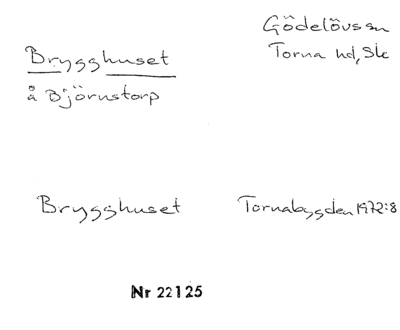 Brygghuset
å Björnstorp
Gödelövs sn
Torna hd, Sk
Brygghuset
Tornabygden 1972:8
Nr 22125